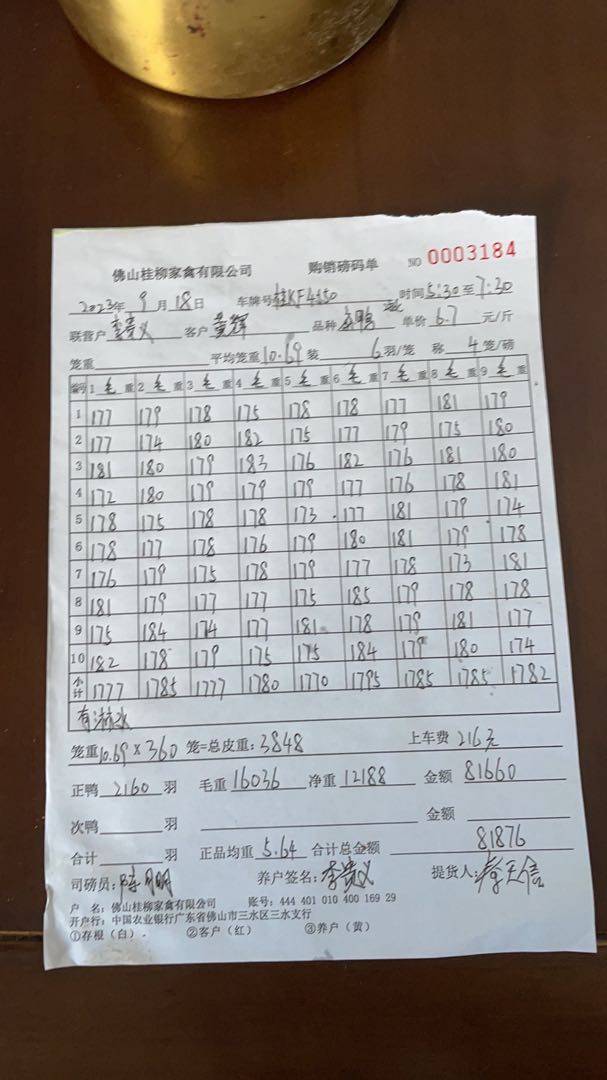 佛山桂柳家禽有限公司 购销磅码单 NO 0003184
2023年 9月 18日 车牌号 桂KF4450 时间 5:30 至 7:30
联营户 李贵义 客户 黄辉 品种 单价 6.7 元/斤
笼重 平均笼重 10.69 装 6 羽/笼 称 4 笼/磅
编号 1 毛 重 2 毛 重 3 毛 重 4 毛 重 5 毛 重 6 毛 重 7 毛 重 8 毛 重 9 毛 重
1 177 179 178 175 178 178 177 181 179
2 177 174 180 182 175 177 179 175 180
3 181 180 179 183 176 182 176 181 180
4 172 180 179 179 179 177 176 178 181
5 178 175 178 178 173 177 181 179 174
6 178 177 178 176 179 180 181 179 178
7 176 179 175 178 179 177 178 173 181
8 181 179 177 177 175 185 179 178 178
9 175 184 174 177 181 178 179 181 177
10 182 178 179 175 175 184 179 180 174
小计 1777 1785 1777 1780 1770 1795 1785 1785 1782
有淋水
笼重 10.69 X 360 笼=总皮重: 3848 上车费 216元
正鸭 2160 羽 毛重 16036 净重 12188 金额 81660
次鸭 羽 金额
合计 羽 正品均重 5.64 合计总金额 81876
司磅员: 养户签名: 李贵义 提货人:
户 名: 佛山桂柳家禽有限公司 账号: 444 401 010 400 169 29
开户行: 中国农业银行广东省佛山市三水区三水支行
①存根(白). ②客户(红) ③养户(黄)